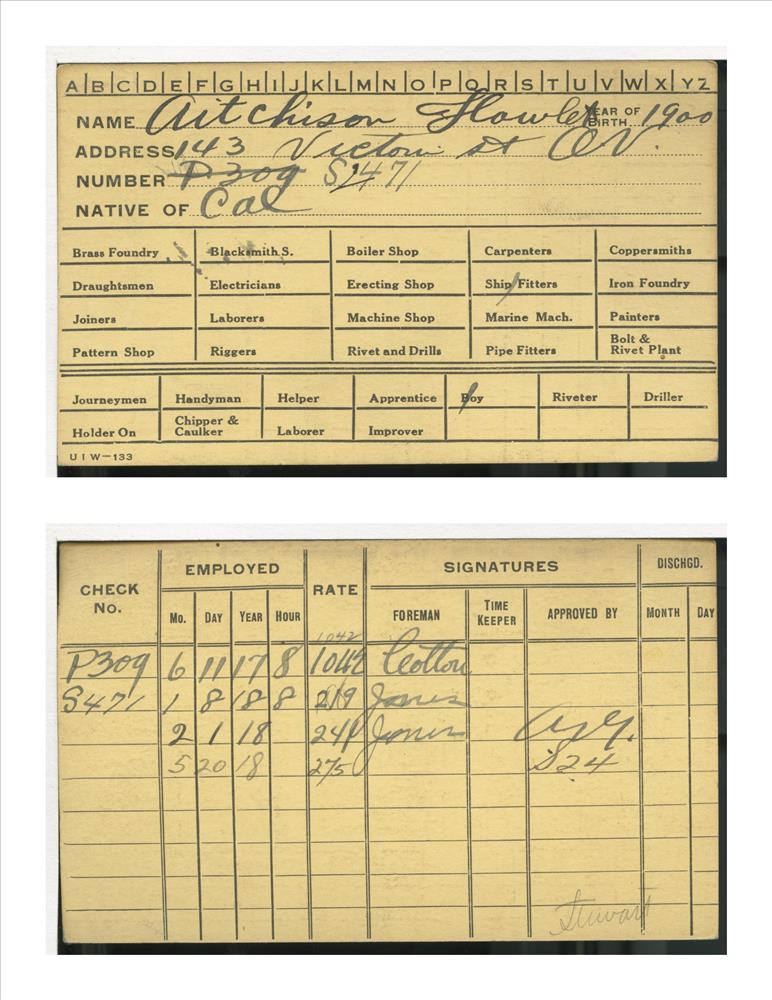 A B C D E F G H I J K L M N O P Q R S T U V W X Y Z
NAME Aitchison Howlet YEAR OF BIRTH 1900
ADDRESS 143 Victoria St OV.
NUMBER P309 S1471
NATIVE OF Cal
Brass Foundry Blacksmith S. Boiler Shop Carpenters Coppersmiths
Draughtsmen Electricians Erecting Shop Ship Fitters Iron Foundry
Joiners Laborers Machine Shop Marine Mach. Painters
Pattern Shop Riggers Rivet and Drills Pipe Fitters Bolt & Rivet Plant
Journeymen Handyman Helper Apprentice Boy Riveter Driller
Holder On Chipper & Caulker Laborer Improver
U I W—133
CHECK No. EMPLOYED RATE SIGNATURES DISCHGD.
Mo. DAY YEAR HOUR FOREMAN TIME KEEPER APPROVED BY MONTH DAY
1042
P309 6 11 17 8 1042 Cotton
S471 1 8 18 8 219 Jones
2 1 18 241 Jones
5 20 18 275 S24
Stewart